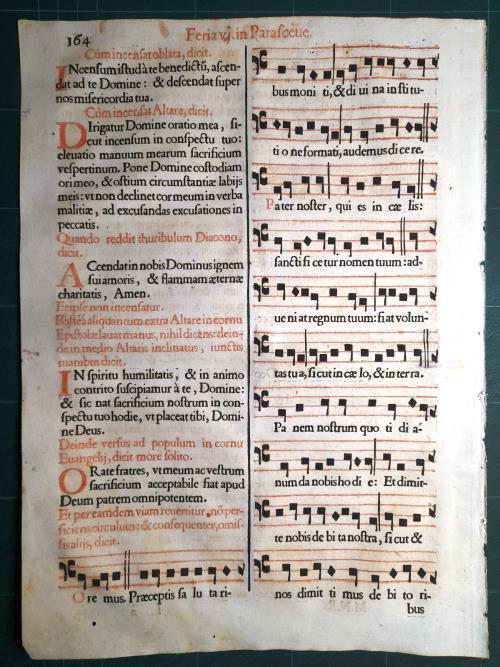 164
Feria vj. in Parasceue.
Cùm incensat oblata, dicit.
INcensum istud à te benedictũ, ascen-
dat ad te Domine: & descendat super
nos misericordia tua.
Cùm incensat Altare, dicit.
DIrigatur Domine oratio mea, si-
cut incensum in conspectu tuo:
eleuatio manuum mearum sacrificium
vespertinum. Pone Domine custodiam
ori meo, & ostium circumstantiæ labijs
meis: vt non declinet cor meum in verba
malitiæ, ad excusandas excusationes in
peccatis.
Quando reddit thuribulum Diacono,
dicit.
ACcendat in nobis Dominus ignem
sui amoris, & flammam æternæ
charitatis, Amen.
Et ipse non incensatur.
Postea aliquantum extra Altare in cornu
Epistolæ lauat manus, nihil dicens: dein-
de in medio Altaris inclinatus, iunctis
manibus dicit.
IN spiritu humilitatis, & in animo
contrito suscipiamur à te, Domine:
& sic fiat sacrificium nostrum in con-
spectu tuo hodie, vt placeat tibi, Domi-
ne Deus.
Deinde versus ad populum in cornu
Euangelij, dicit more solito.
ORate fratres, vt meum ac vestrum
sacrificium acceptabile fiat apud
Deum patrem omnipotentem.
Et per eamdem viam reuertitur, nõ per-
ficiens circulum: & consequenter, omis-
sis alijs, dicit.
Ore mus. Præceptis sa lu ta ri-
bus moni ti, & di ui na in sti tu-
ti o ne formati, audemus di ce re.
Pater noster, qui es in cæ lis:
sancti fi ce tur nomen tuum: ad-
ue ni at regnum tuum: fiat volun-
tas tu a, si cut in cæ lo, & in terra.
Pa nem nostrum quo ti di a-
num da nobis ho di e: Et dimit-
te nobis de bi ta nostra, si cut &
nos dimit ti mus de bi to ri-
bus